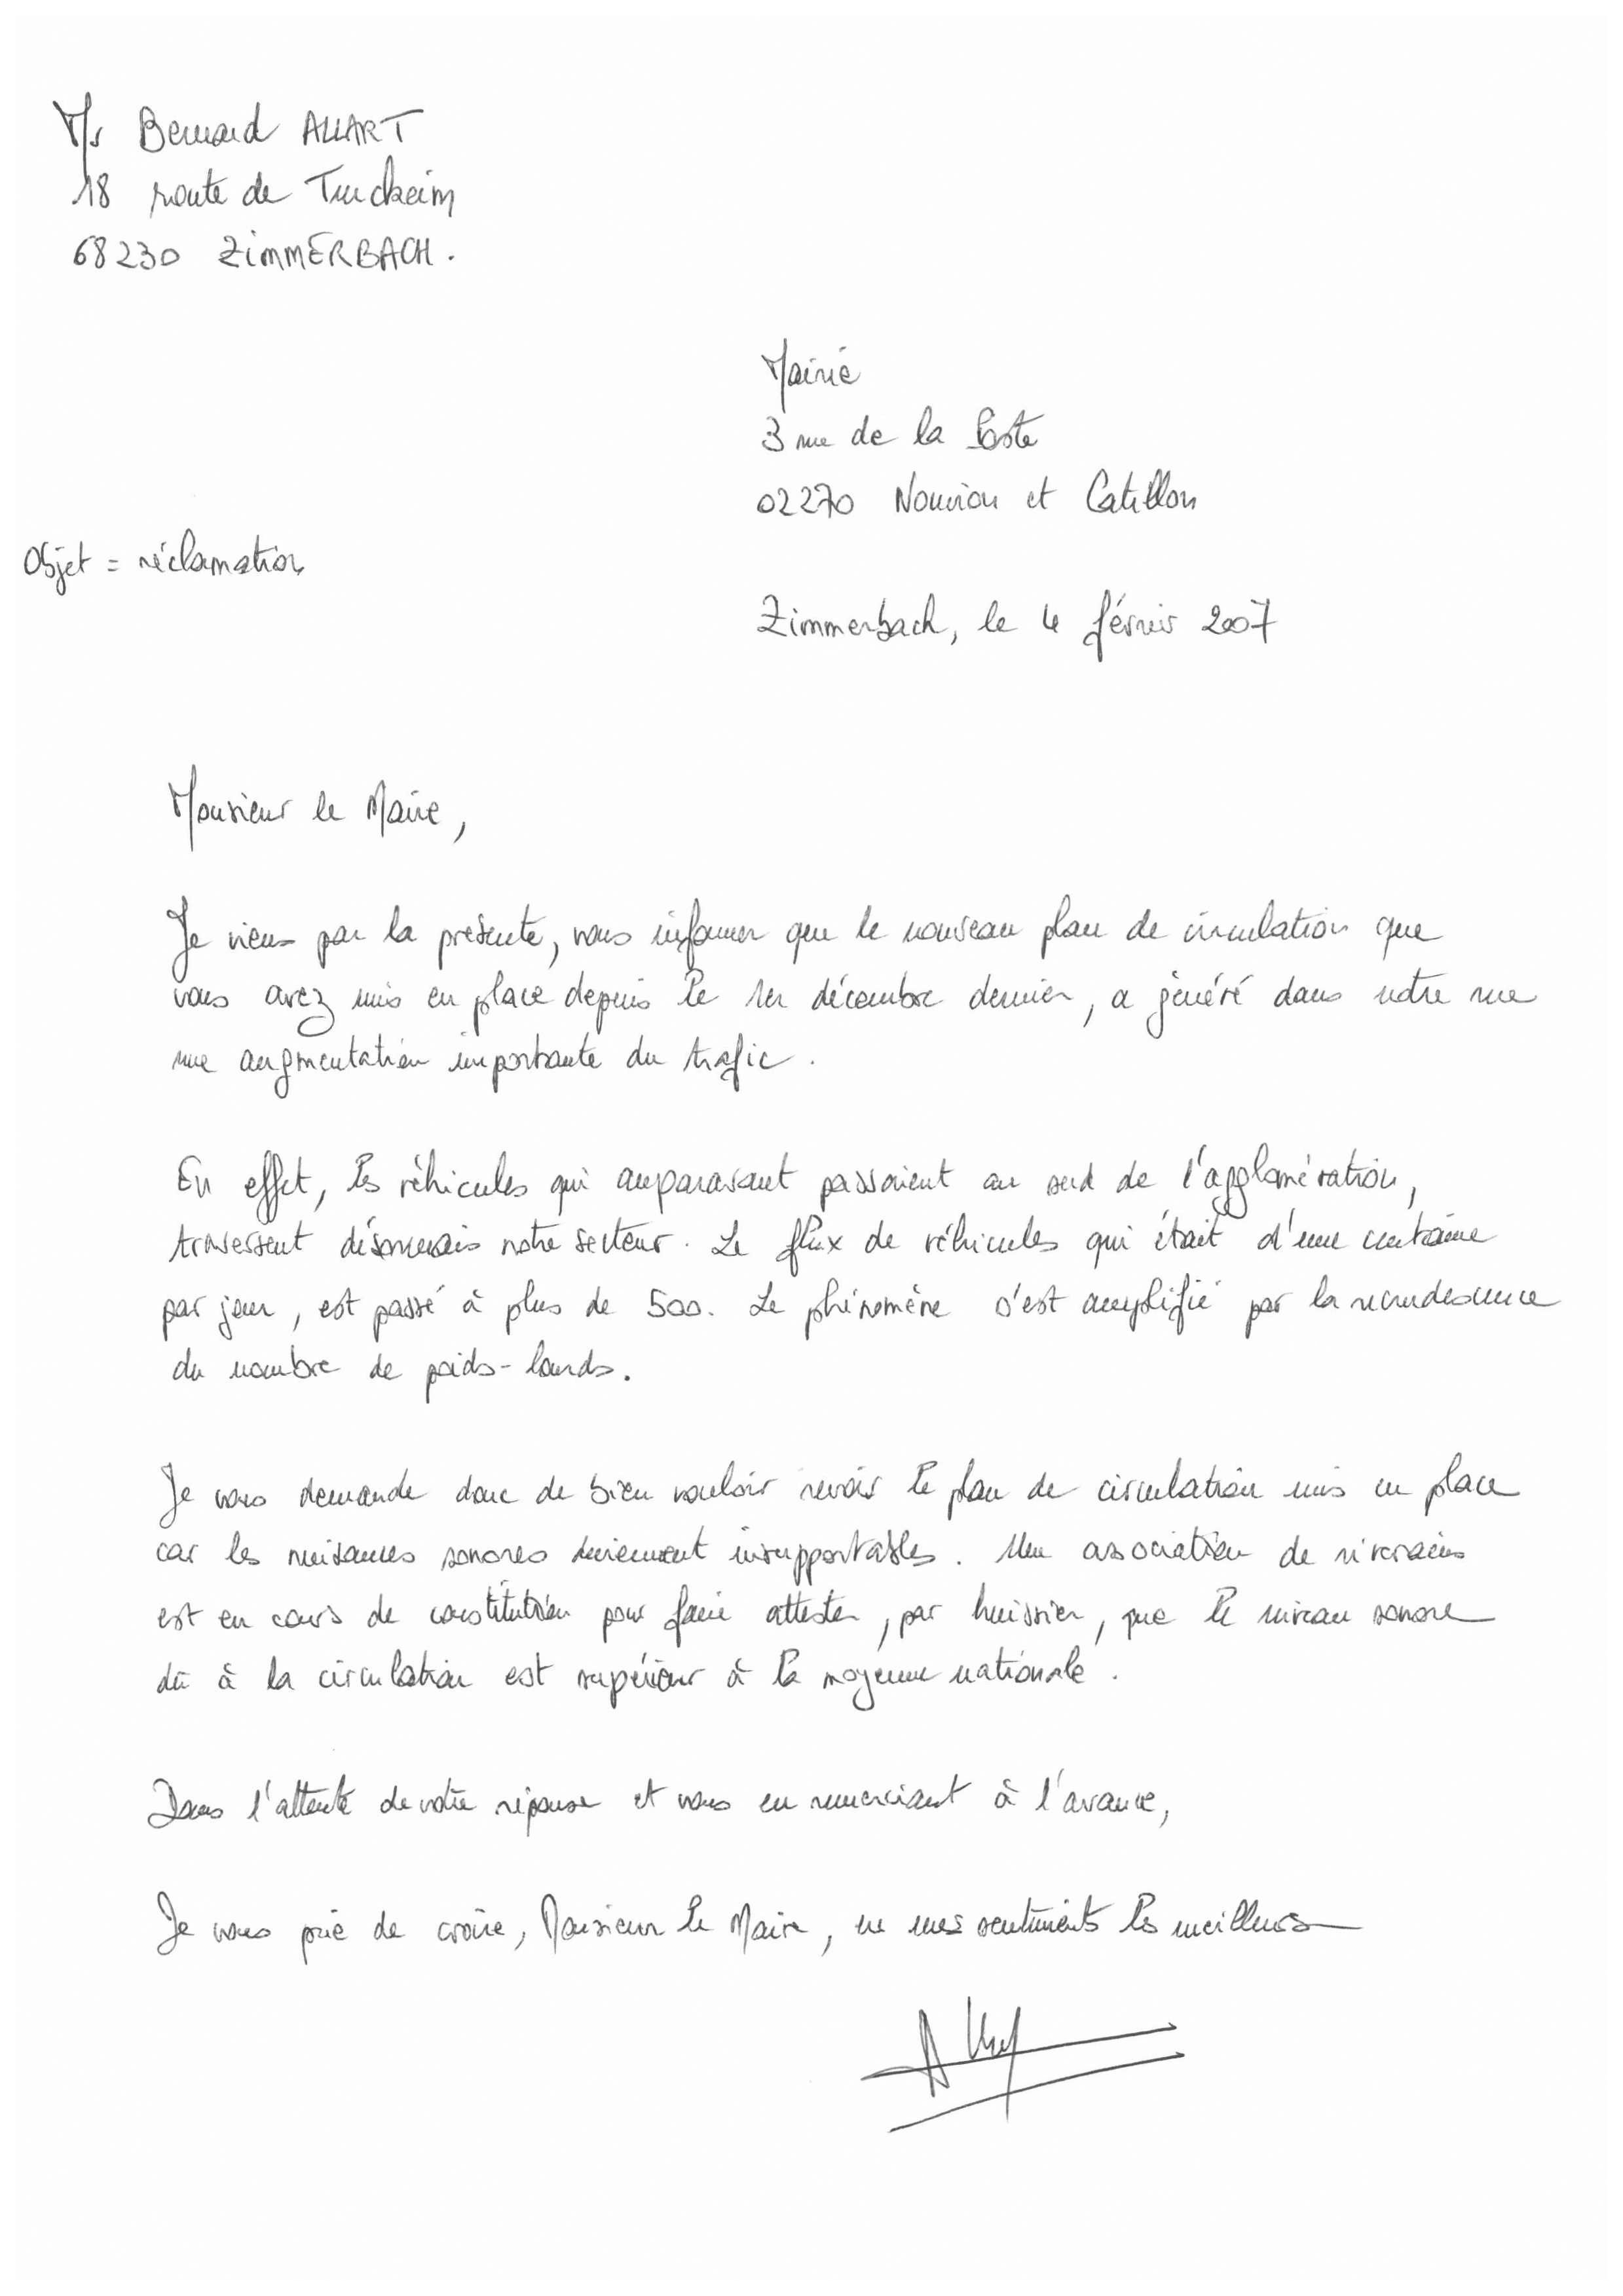 Mr Bernard ALLART
18 route de Turckeim
68230 ZIMMERBACH.
Mairie
3 rue de la Poste
02270 Nouvion et Catillon
Objet = réclamation
Zimmerbach, le 4 février 2007
Monsieur le Maire,
Je viens par la présente, vous informer que le nouveau plan de circulation que
vous avez mis en place depuis le 1er décembre dernier, a généré dans notre rue
une augmentation importante du trafic.
En effet, les véhicules qui auparavant passaient au sud de l'agglomération,
traversent désormais notre secteur. Le flux de véhicules qui était d'une centaine
par jour, est passé à plus de 500. Le phénomène s'est amplifié par la recrudescence
du nombre de poids-lourds.
Je vous demande donc de bien vouloir revoir le plan de circulation mis en place
car les nuisances sonores deviennent insupportables. Une association de riverains
est en cours de constitution pour faire attester, par huissier, que le niveau sonore
dû à la circulation est supérieur à la moyenne nationale.
Dans l'attente de votre réponse et vous en remerciant à l'avance,
Je vous prie de croire, Monsieur le Maire, en mes sentiments les meilleurs